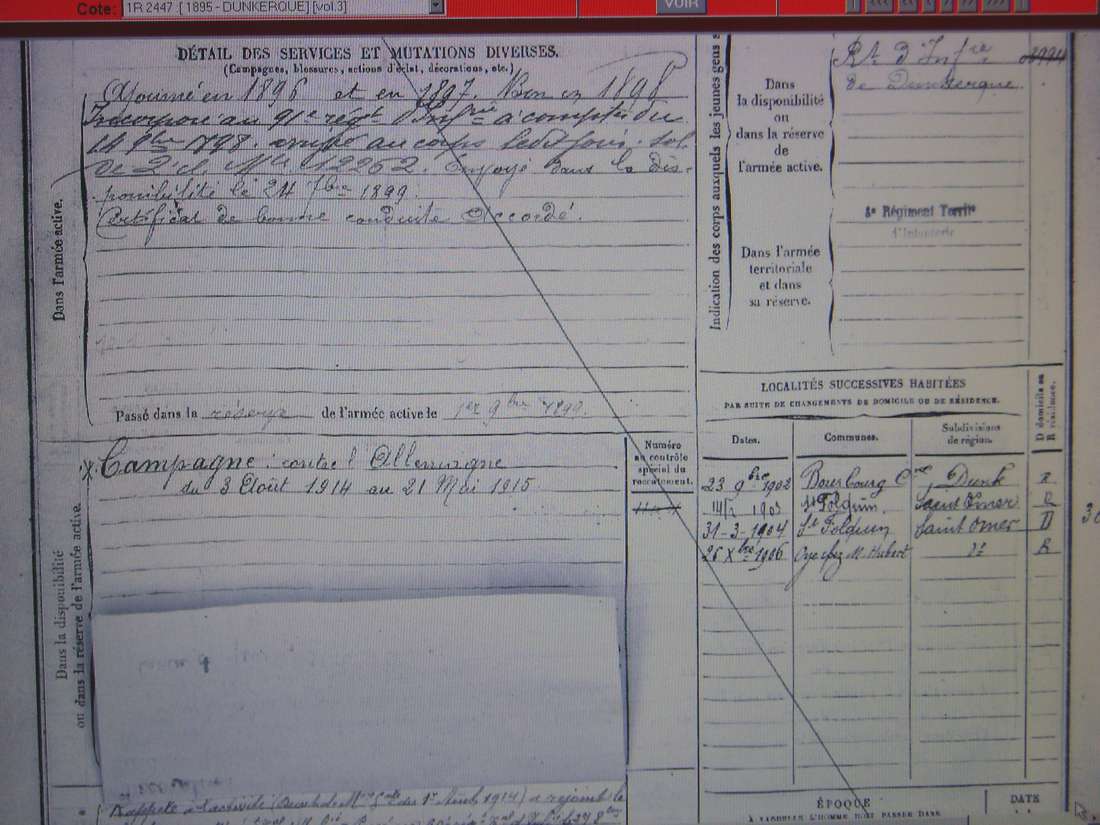 Cote: 1R 2447 [ 1895 - DUNKERQUE] [vol.3] VOIR
DÉTAIL DES SERVICES ET MUTATIONS DIVERSES.
(Campagnes, blessures, actions d'éclat, décorations, etc.)
Ajourné en 1896 et en 1897. Bon en 1898
Incorporé au 91e régt d'Infie à compter du
14 9bre 1898. arrivé au corps ledit jour. Sol.
de 2e cl. Mle 12262. Envoyé dans la dis-
ponibilité le 24 7bre 1899.
Certificat de bonne conduite accordé.
Dans l'armée active.
Passé dans la réserve de l'armée active le 1er 9bre 1899.
Campagne contre l'Allemagne
du 3 Août 1914 au 21 Mai 1915
Dans la disponibilité
ou dans la réserve de l'armée active.
Numéro
au contrôle
spécial du
recrutement.
Rappelé à l'activité a rejoint le
Indication des corps auxquels les jeunes gens s
Dans
la disponibilité
ou
dans la réserve de
l'armée active.
Rt d'Infie
de Dunkerque
Dans l'armée
territoriale
et dans
sa réserve.
8e Régiment Territ
d'Infanterie
LOCALITÉS SUCCESSIVES HABITÉES
PAR SUITE DE CHANGEMENTS DE DOMICILE OU DE RÉSIDENCE.
Dates. Communes. Subdivisions de région. D domicile ou R résidence.
23 9bre 1902 Bourbourg Cne Dunk R
1903 St Folquin Saint Omer R
31-3-1904 St Folquin Saint Omer D
26 Xbre 1906 Oye chez M. Hubert do R
ÉPOQUE
À LAQUELLE L'HOMME DOIT PASSER DANS
DATE